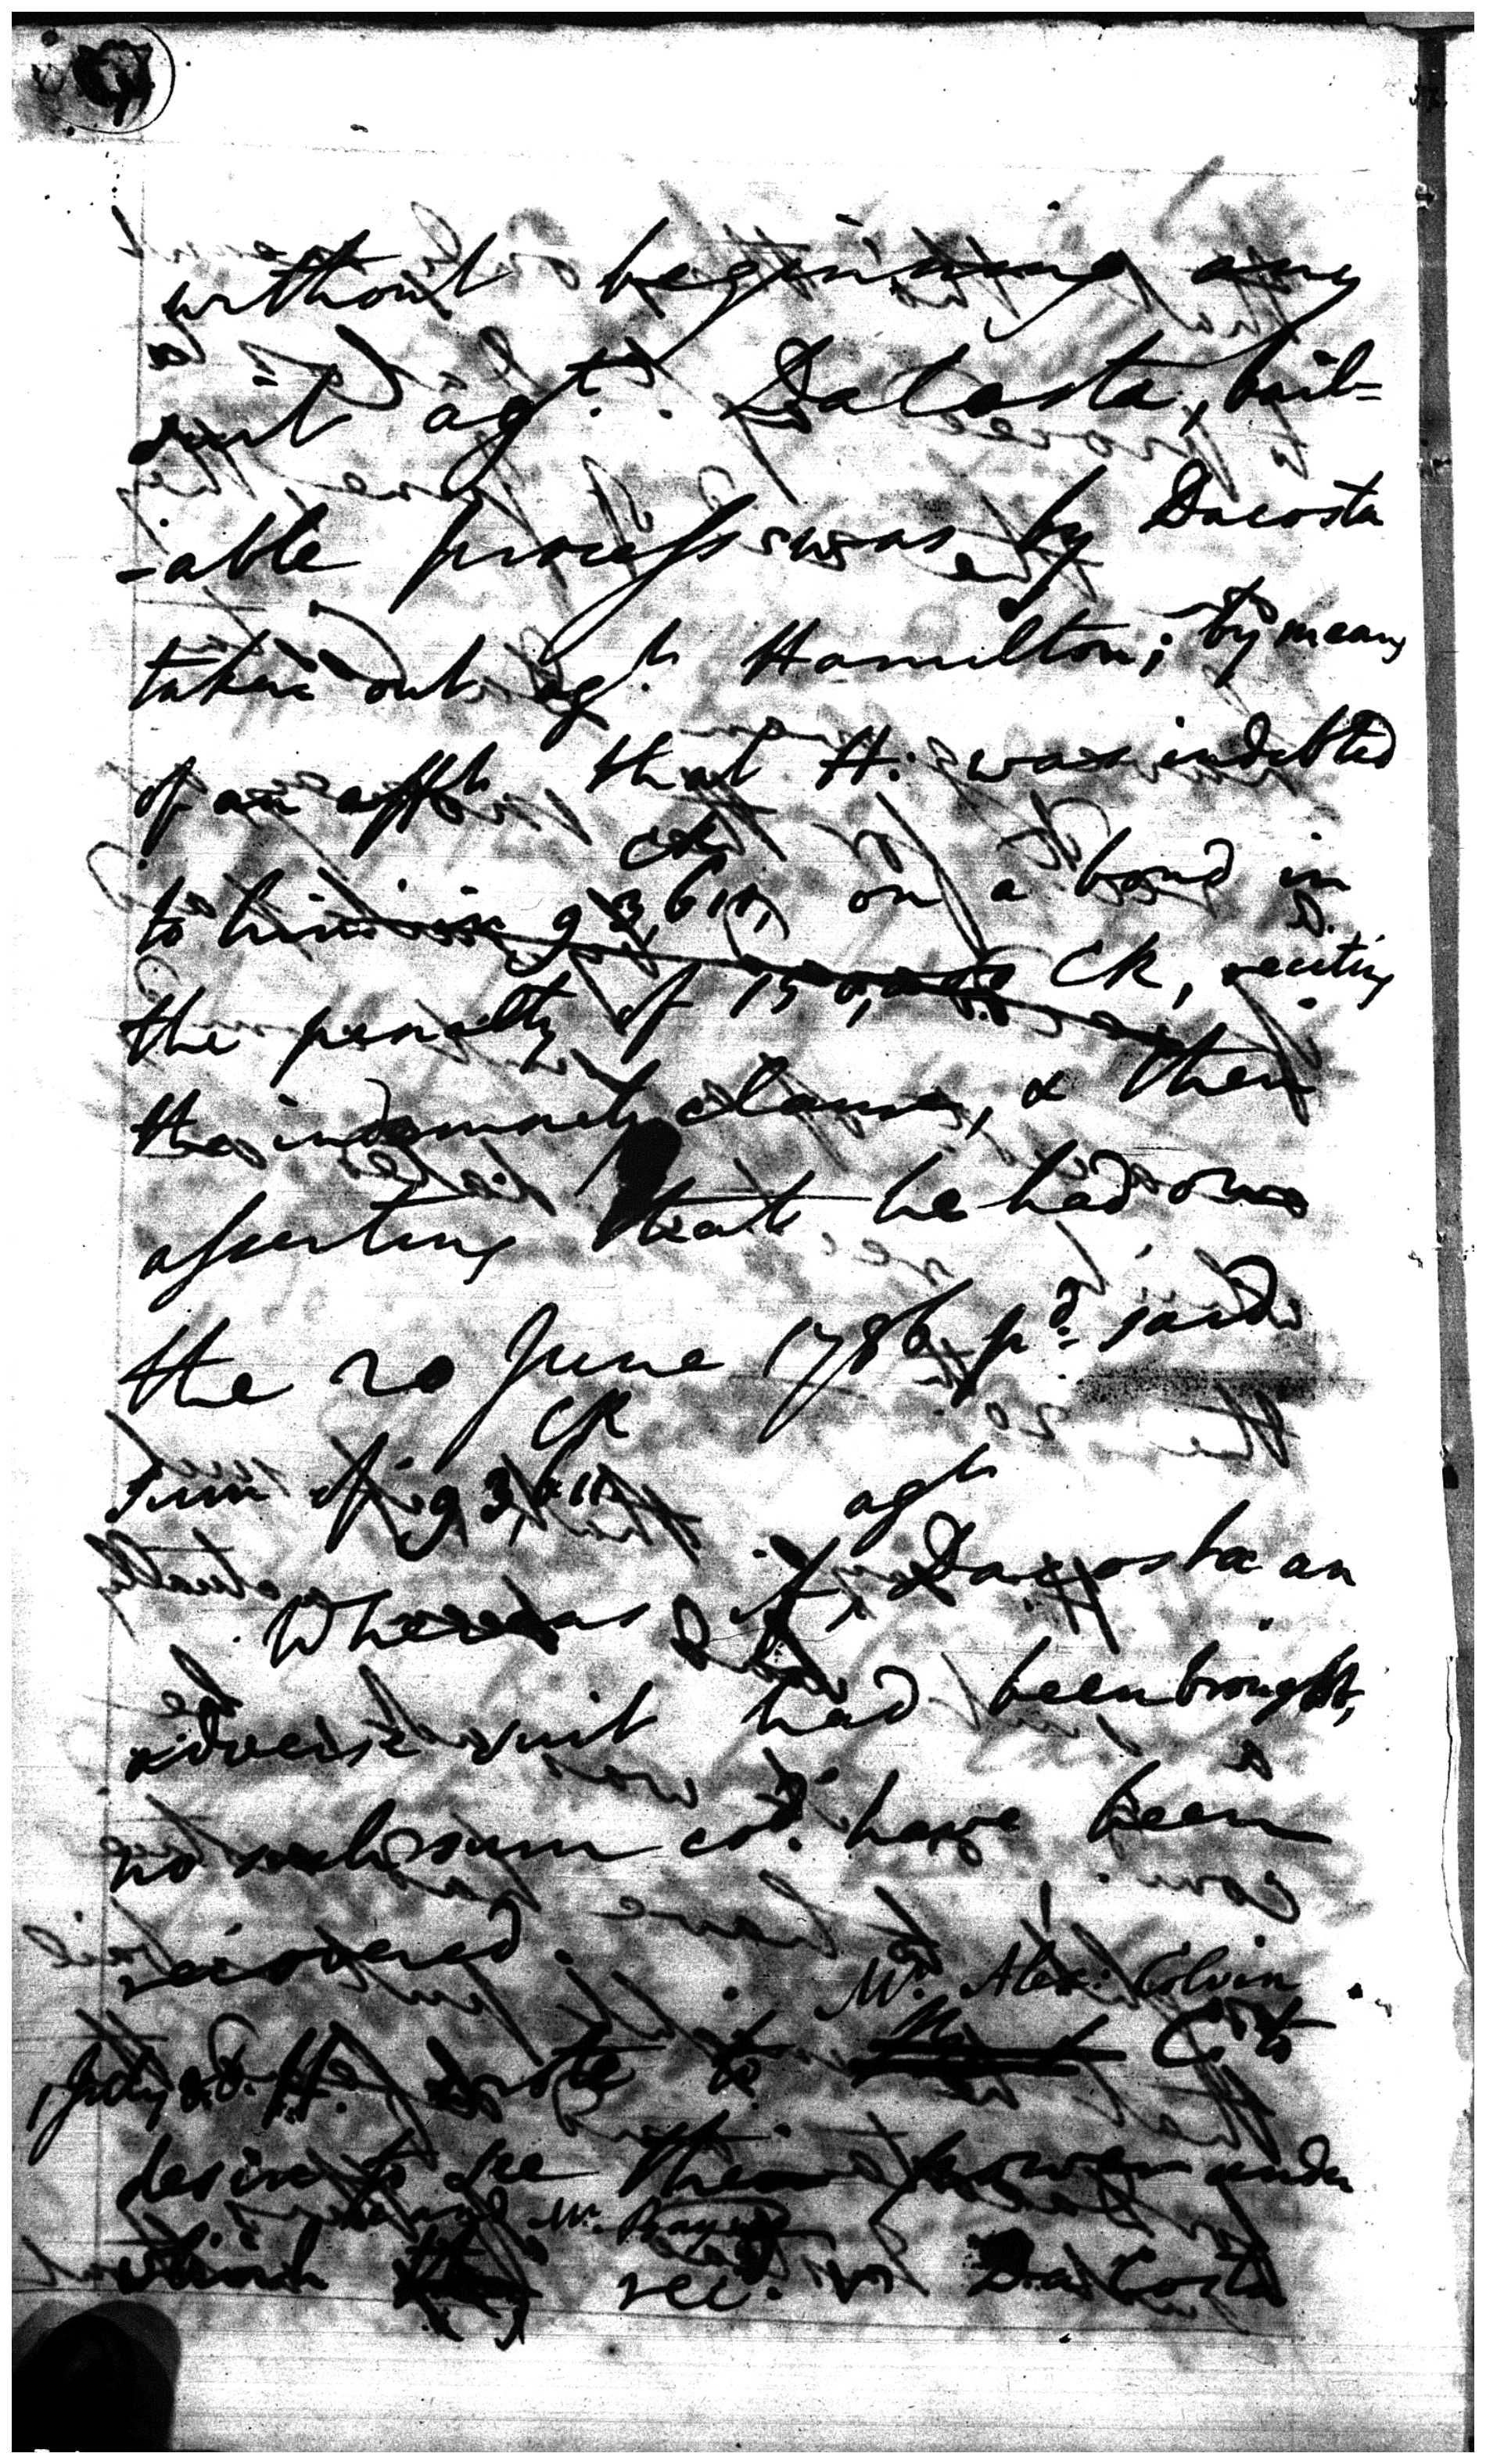 without beginning any
suit agt. DaCosta, bail=
-able process was by Dacosta
taken out agt. Hamilton; by means
of an afft. that H. was indebted
CR
to him in 93,611, on a bond in
the penalty of 150,000 CR, reciting
the indemnity clause, & then
asserting that he had on
the 20 June 1786, pd. said
CR
sum of 93,611
agt
Whereas if Dacosta an
adverse suit had been brought,
no such sum cod. have been
recovered.
Mr. Alex: Colvin
July 88. H. wrote to Co. to
desire to see the power under
and Mr. Bayne
which rec. Da Costa